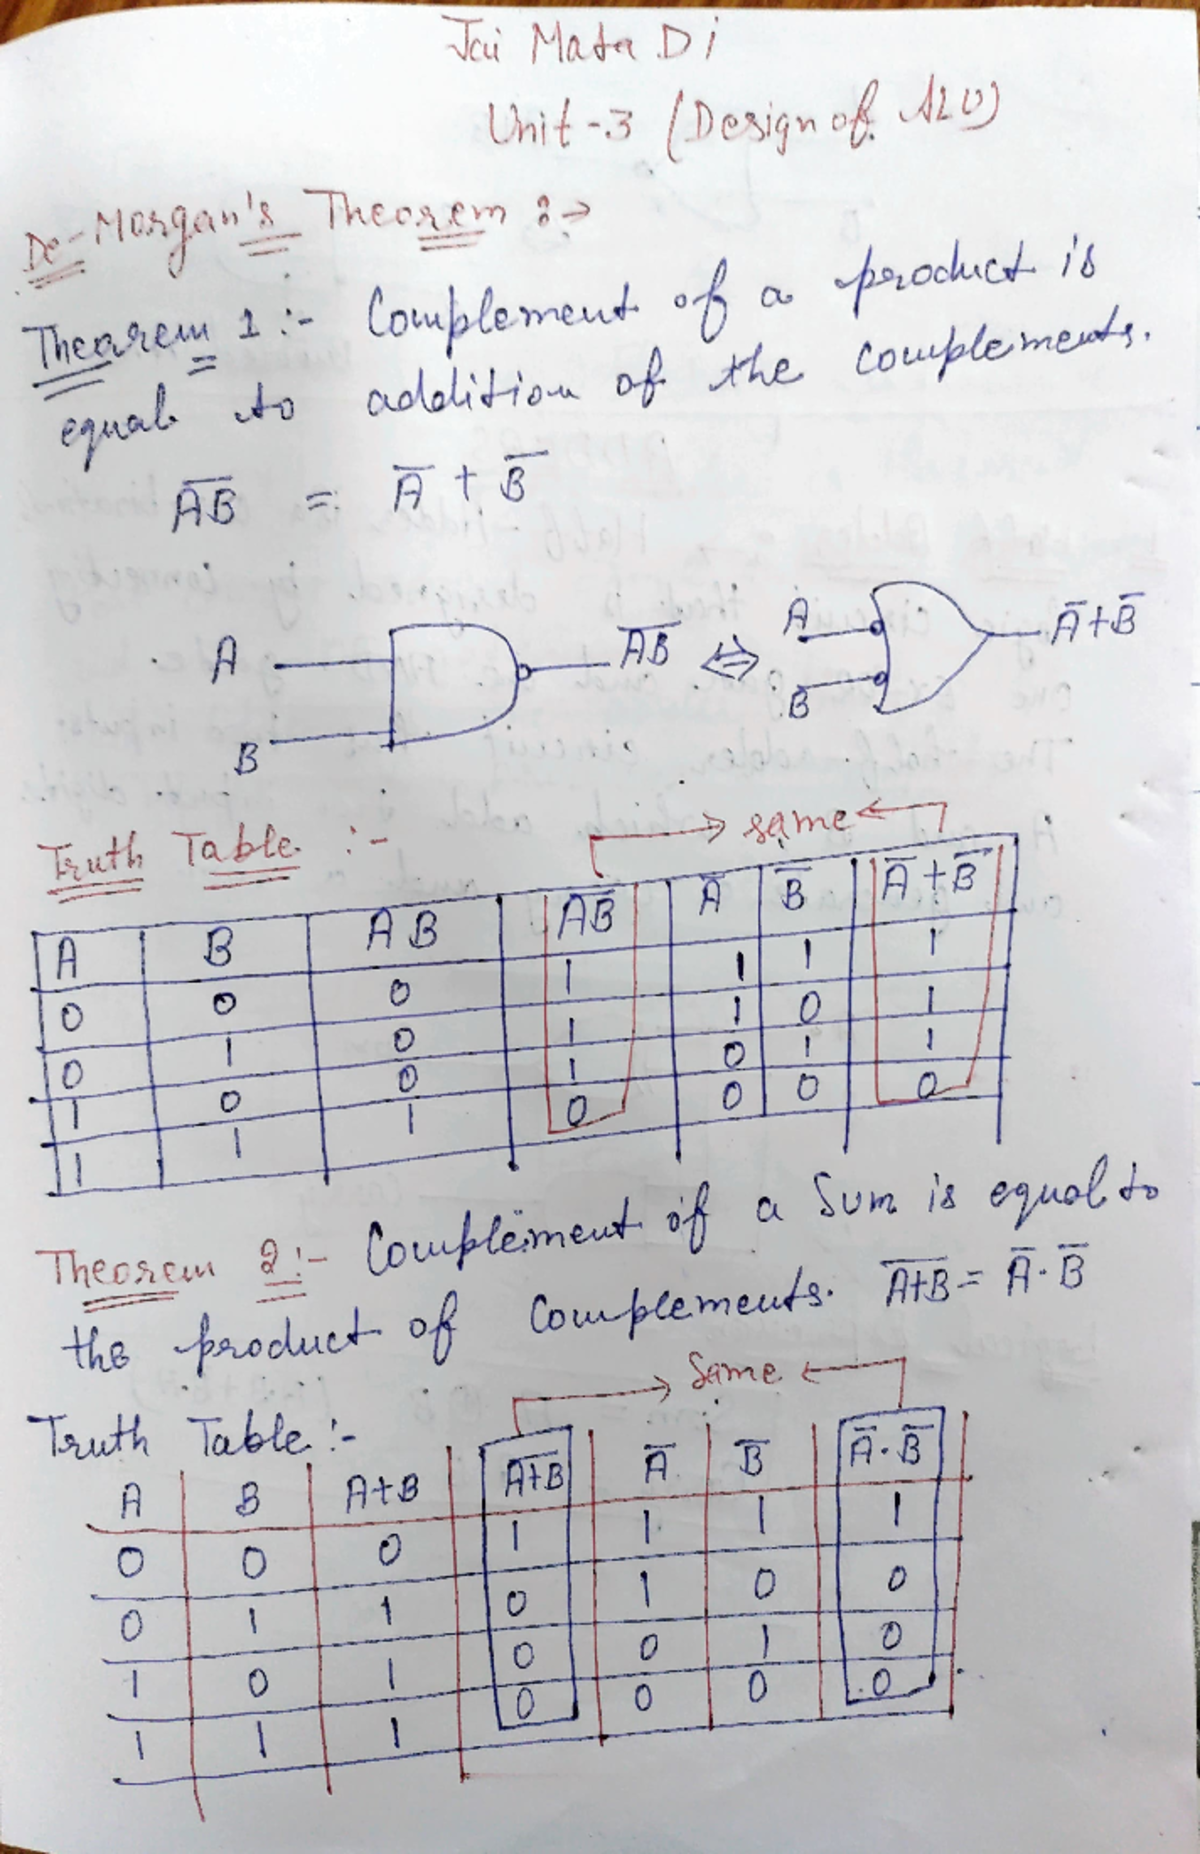 Jai Mata Di
Unit-3 (Design of ALU)
De-Morgan's Theorem :→
Theorem 1 :- Complement of a product is
equal to addition of the complements.
A̅B̅ = A̅ + B̅
A
B
A̅B̅ ⇔ A
B
A̅+B̅
Truth Table :-
→ same ←
A B AB A̅B̅ A̅ B̅ A̅+B̅
0 0 0 1 1 1 1
0 1 0 1 1 0 1
1 0 0 1 0 1 1
1 1 1 0 0 0 0
Theorem 2 :- Complement of a Sum is equal to
the product of Complements. A̅+̅B̅ = A̅·B̅
→ Same ←
Truth Table :-
A B A+B A̅+̅B̅ A̅ B̅ A̅·B̅
0 0 0 1 1 1 1
0 1 1 0 1 0 0
1 0 1 0 0 1 0
1 1 1 0 0 0 0